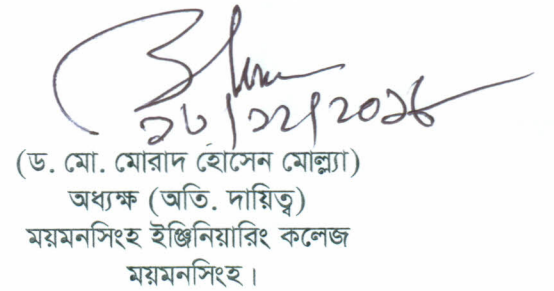 (ড. মো. মোরাদ হোসেন মোল্ল্যা)
অধ্যক্ষ (অতি. দায়িত্ব)
ময়মনসিংহ ইঞ্জিনিয়ারিং কলেজ
ময়মনসিংহ।